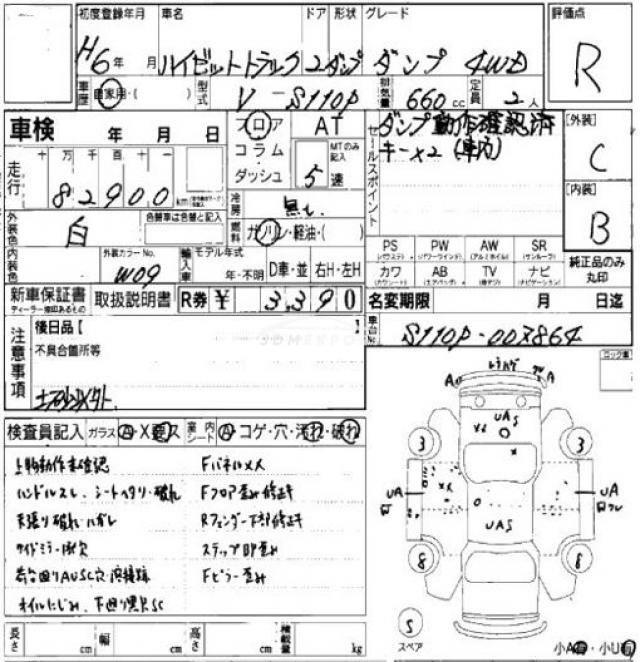 初度登録年月 車名 ドア 形状 グレード 評価点
H6年 月 ハイゼットトラック 2 ダンプ ダンプ 4WD R
車歴 自家用・( ) 型式 V-S110P 排気量 660cc 定員 2人
車検 年 月 日 フロア AT セールスポイント ダンプ動作確認済 [外装]
コラム MTのみ記入 キー×2 (車内) C
走行 十万千百十一 ダッシュ 5速
82900 km 冷房 無し [内装]
外装色 白 色替車は色替と記入 燃料 ガソリン・軽油・( ) B
PS PW AW SR
(パワステ) (パワーウインドウ) (アルミホイル) (サンルーフ)
内装色 外装カラーNo. W09 輸入車 モデル年式 年・不明 D車・並 右H・左H
カワ AB TV ナビ 純正品のみ丸印
(カワシート) (エアバッグ) (ナビゲーション)
新車保証書 取扱説明書 R券 ¥ 3390 名変期限 月 日迄
ディーラー捺印あるもの
後日品【 車台No. S110P-007864
注意事項 不具合箇所等
ロック車
検査員記入 ガラス A・X要ス 室内シート A・コゲ・穴・汚れ・破れ
上物動作未確認 Fパネル×メ
ハンドルスレ、シートヘタリ・破れ Fフロア歪み修正キ
天張り破れ・ハガレ Rフェンダー下部修正キ
サイドミラー ステップ部歪み
荷台廻りAUSC穴・溶接跡 Fピラー歪み
オイルにじみ、下廻り黒又SC
A A
UAS
3 3
UA UA
UAS
8 8
S
スペア
長さ cm 幅 cm 高さ cm 積載量 kg 小A有・小U有